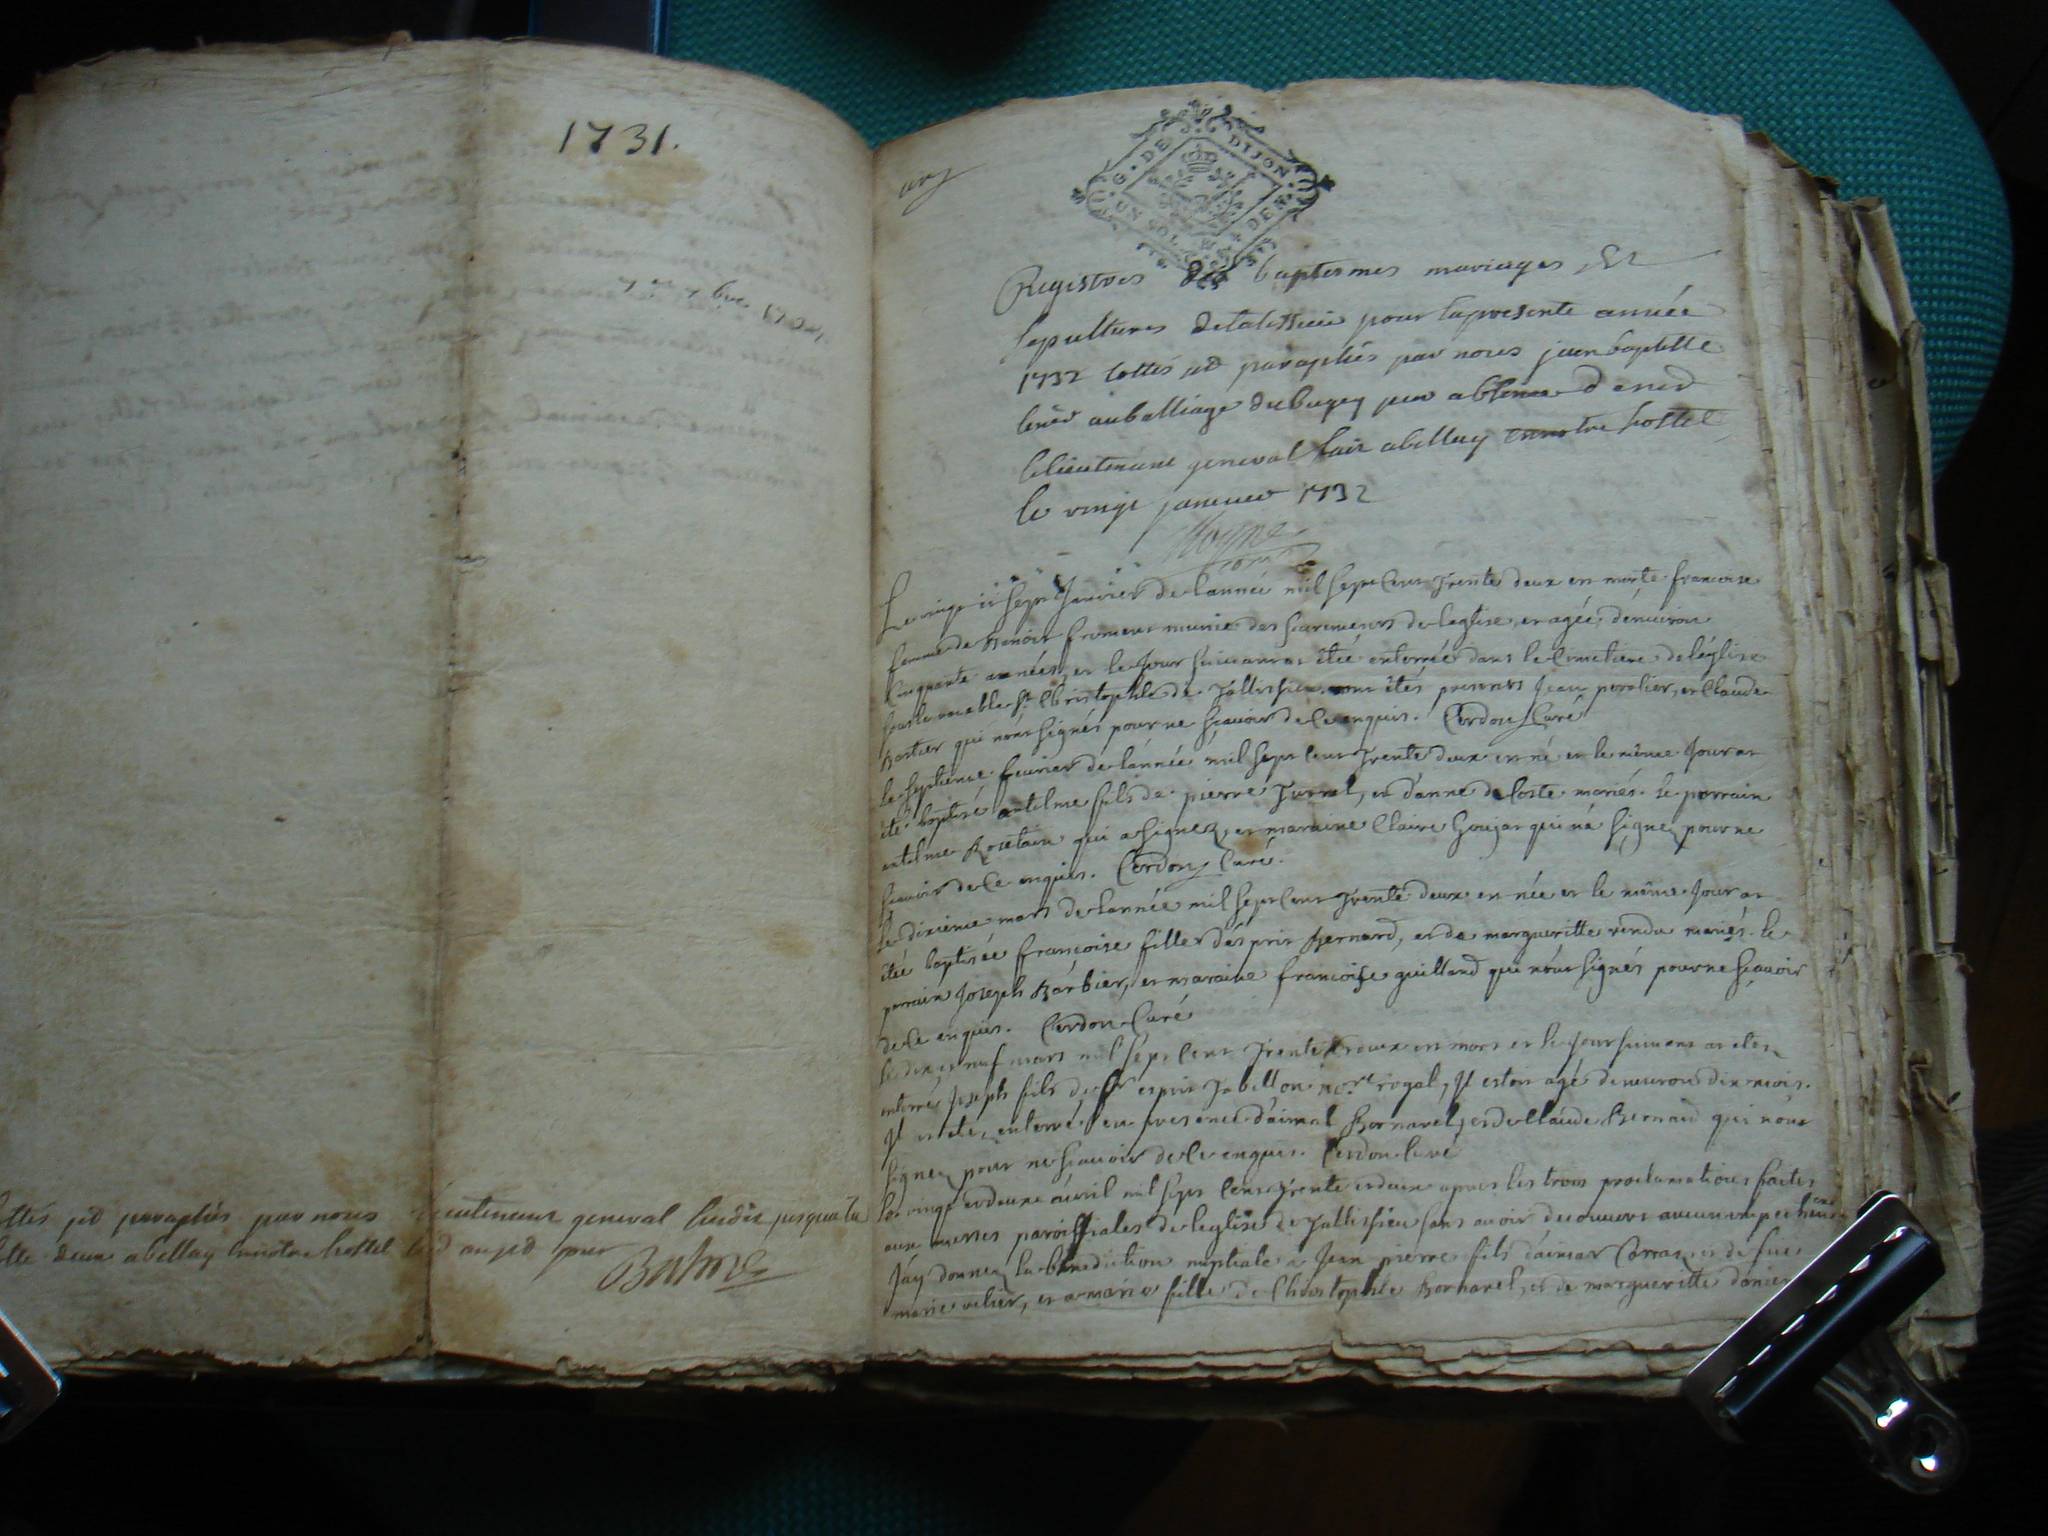 1731.
cottés et paraphés par nous lieutenant general susdit jusqua la
deux a bellay en notre hostel
un
G. DE DIJON
UN SOL DEN.
Registres des baptesmes mariages et
sepultures de talissieu pour la presente année
1732 cottés et paraphés par nous jean baptiste
au balliage du bugey pour absence de
le lieutenant general fait a bellay en notre hostel
le vingt janvier 1732
Le vingt et sept Janvier de lannée mil sept cent trente deux est morte francoise
femme de Benoit fromen munie des sacremens de leglise, et agée denviron
Cinquante années, et le Jour suivant at étée enterrée dans le Cimetiere de léglise
sous le vocable St Christophle de Tallissieu. ont étés presents Jean peralier, et Claude
Bartier qui nont signés pour ne scavoir de Ce enquis. Cerdon Curé
Le septieme fevrier de lánnée mil sept cent trente deux est né et le même Jour at
été baptisé antelme fils de pierre Turrel, et dánne de Coste mariés. le parrain
antelme Rosetain qui a signez, et maraine Claire Goujar qui ná signez pour ne
scavoir de Ce enquis. Cerdon Curé.
Le dixieme mars de lannée mil sept Cent trente deux est née et le même Jour at
étée baptisée francoise fille désprit Bernard, et de margueritte rendu mariés. le
parrain Joseph Bárbier, et maraine francoise guilland qui nónt signés pour ne scavoir
de Ce enquis. Cerdon Curé
Le dix et neuf mars mil sept Cent trente deux est mort et le Jour suivant at eté
enterré Joseph fils de sr esprit Tabillon nore royal, Jl estoit agé denviron dix mois.
Jl at eté enterré en presence dáimé Bornarel, et de Claude Bernard qui nónt
signez pour ne scavoir de Ce enquis. Cerdon Curé
Le vingt et deux avril mil sept Cent trente et deux apres les trois proclamations faites
aux messes paroissiales de leglise de Tallissieu sans avoir decouvert aucun empechement
Jáy donnez la benediction nuptiale a Jean pierre fils dáimar Carraz, et de fue
marie velier, et a marie fille de Christophle Bornarel, et de margueritte dónier